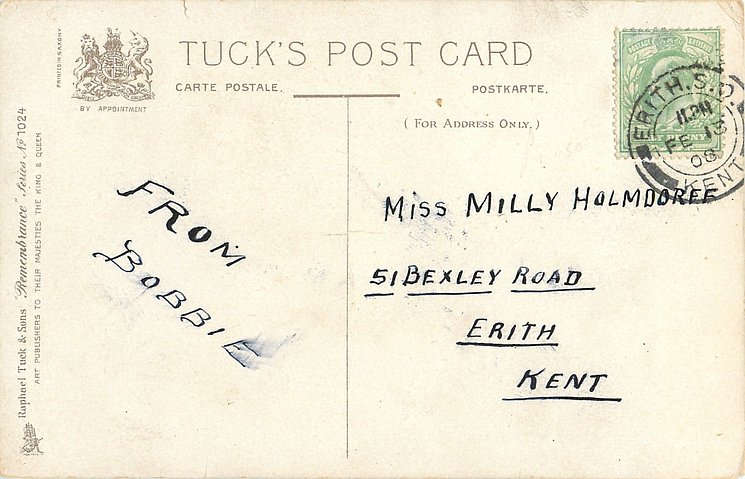 PRINTED IN SAXONY
BY APPOINTMENT
TUCK'S POST CARD
CARTE POSTALE.
POSTKARTE.
(FOR ADDRESS ONLY.)
Raphael Tuck & Sons "Remembrance" Series No 1024
ART PUBLISHERS TO THEIR MAJESTIES THE KING & QUEEN
FROM
BOBBIE
POSTAGE
ERITH.S.O.
FE 18
08
KENT
MISS MILLY HOLMDORFF
51 BEXLEY ROAD
ERITH
KENT